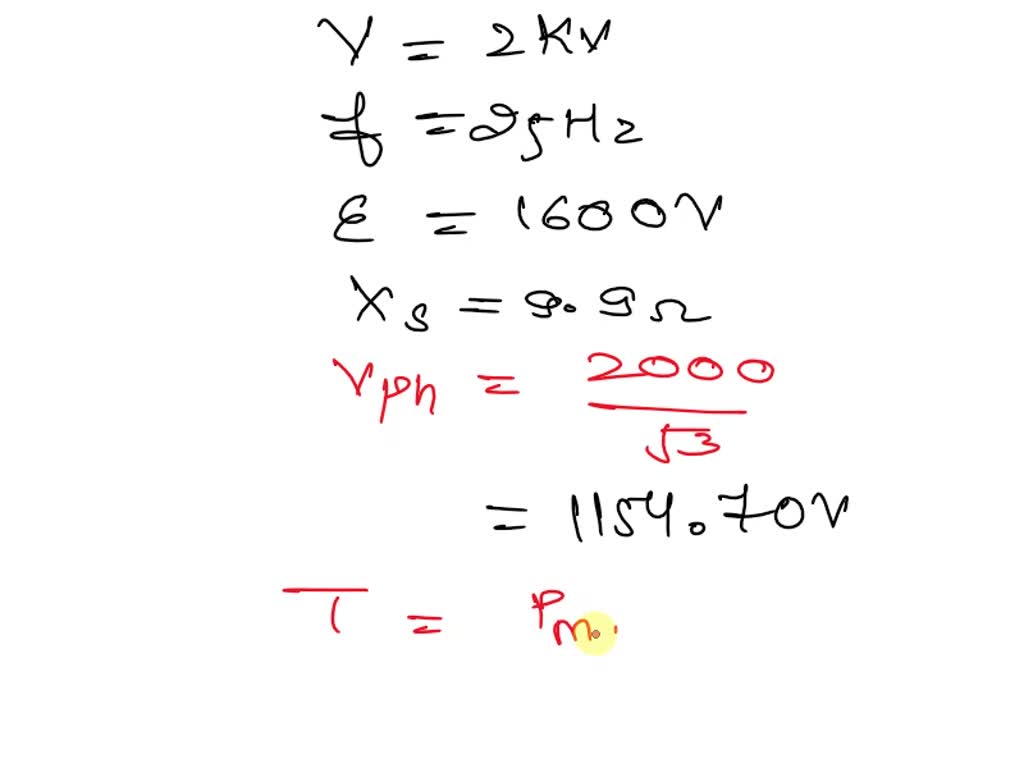 V = 2KV
f = 25Hz
E = 1600V
Xs = 9.9Ω
Vph = 2000
√3
= 1154.70V
T = Pm